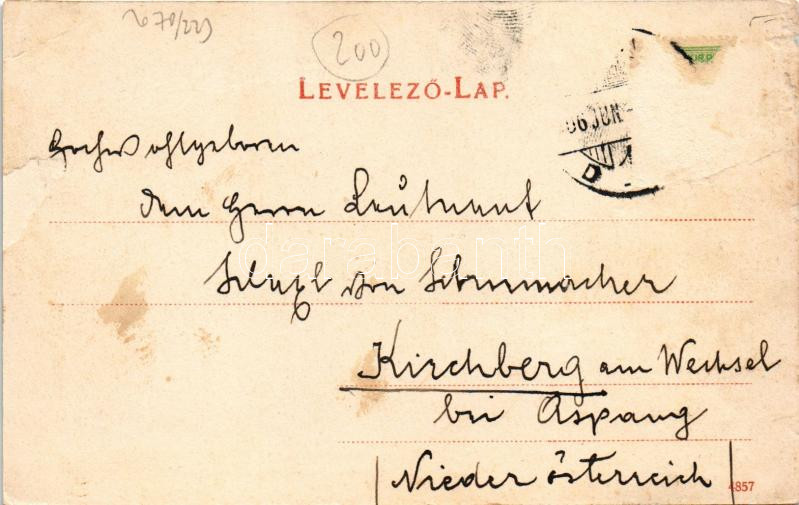 200
LEVELEZŐ-LAP.
06 JUN
Hochwohlgeboren
dem Herrn Leutnant
von Schumacher
Kirchberg am Wechsel
bei Aspang
Niederösterreich
4857
darabanth